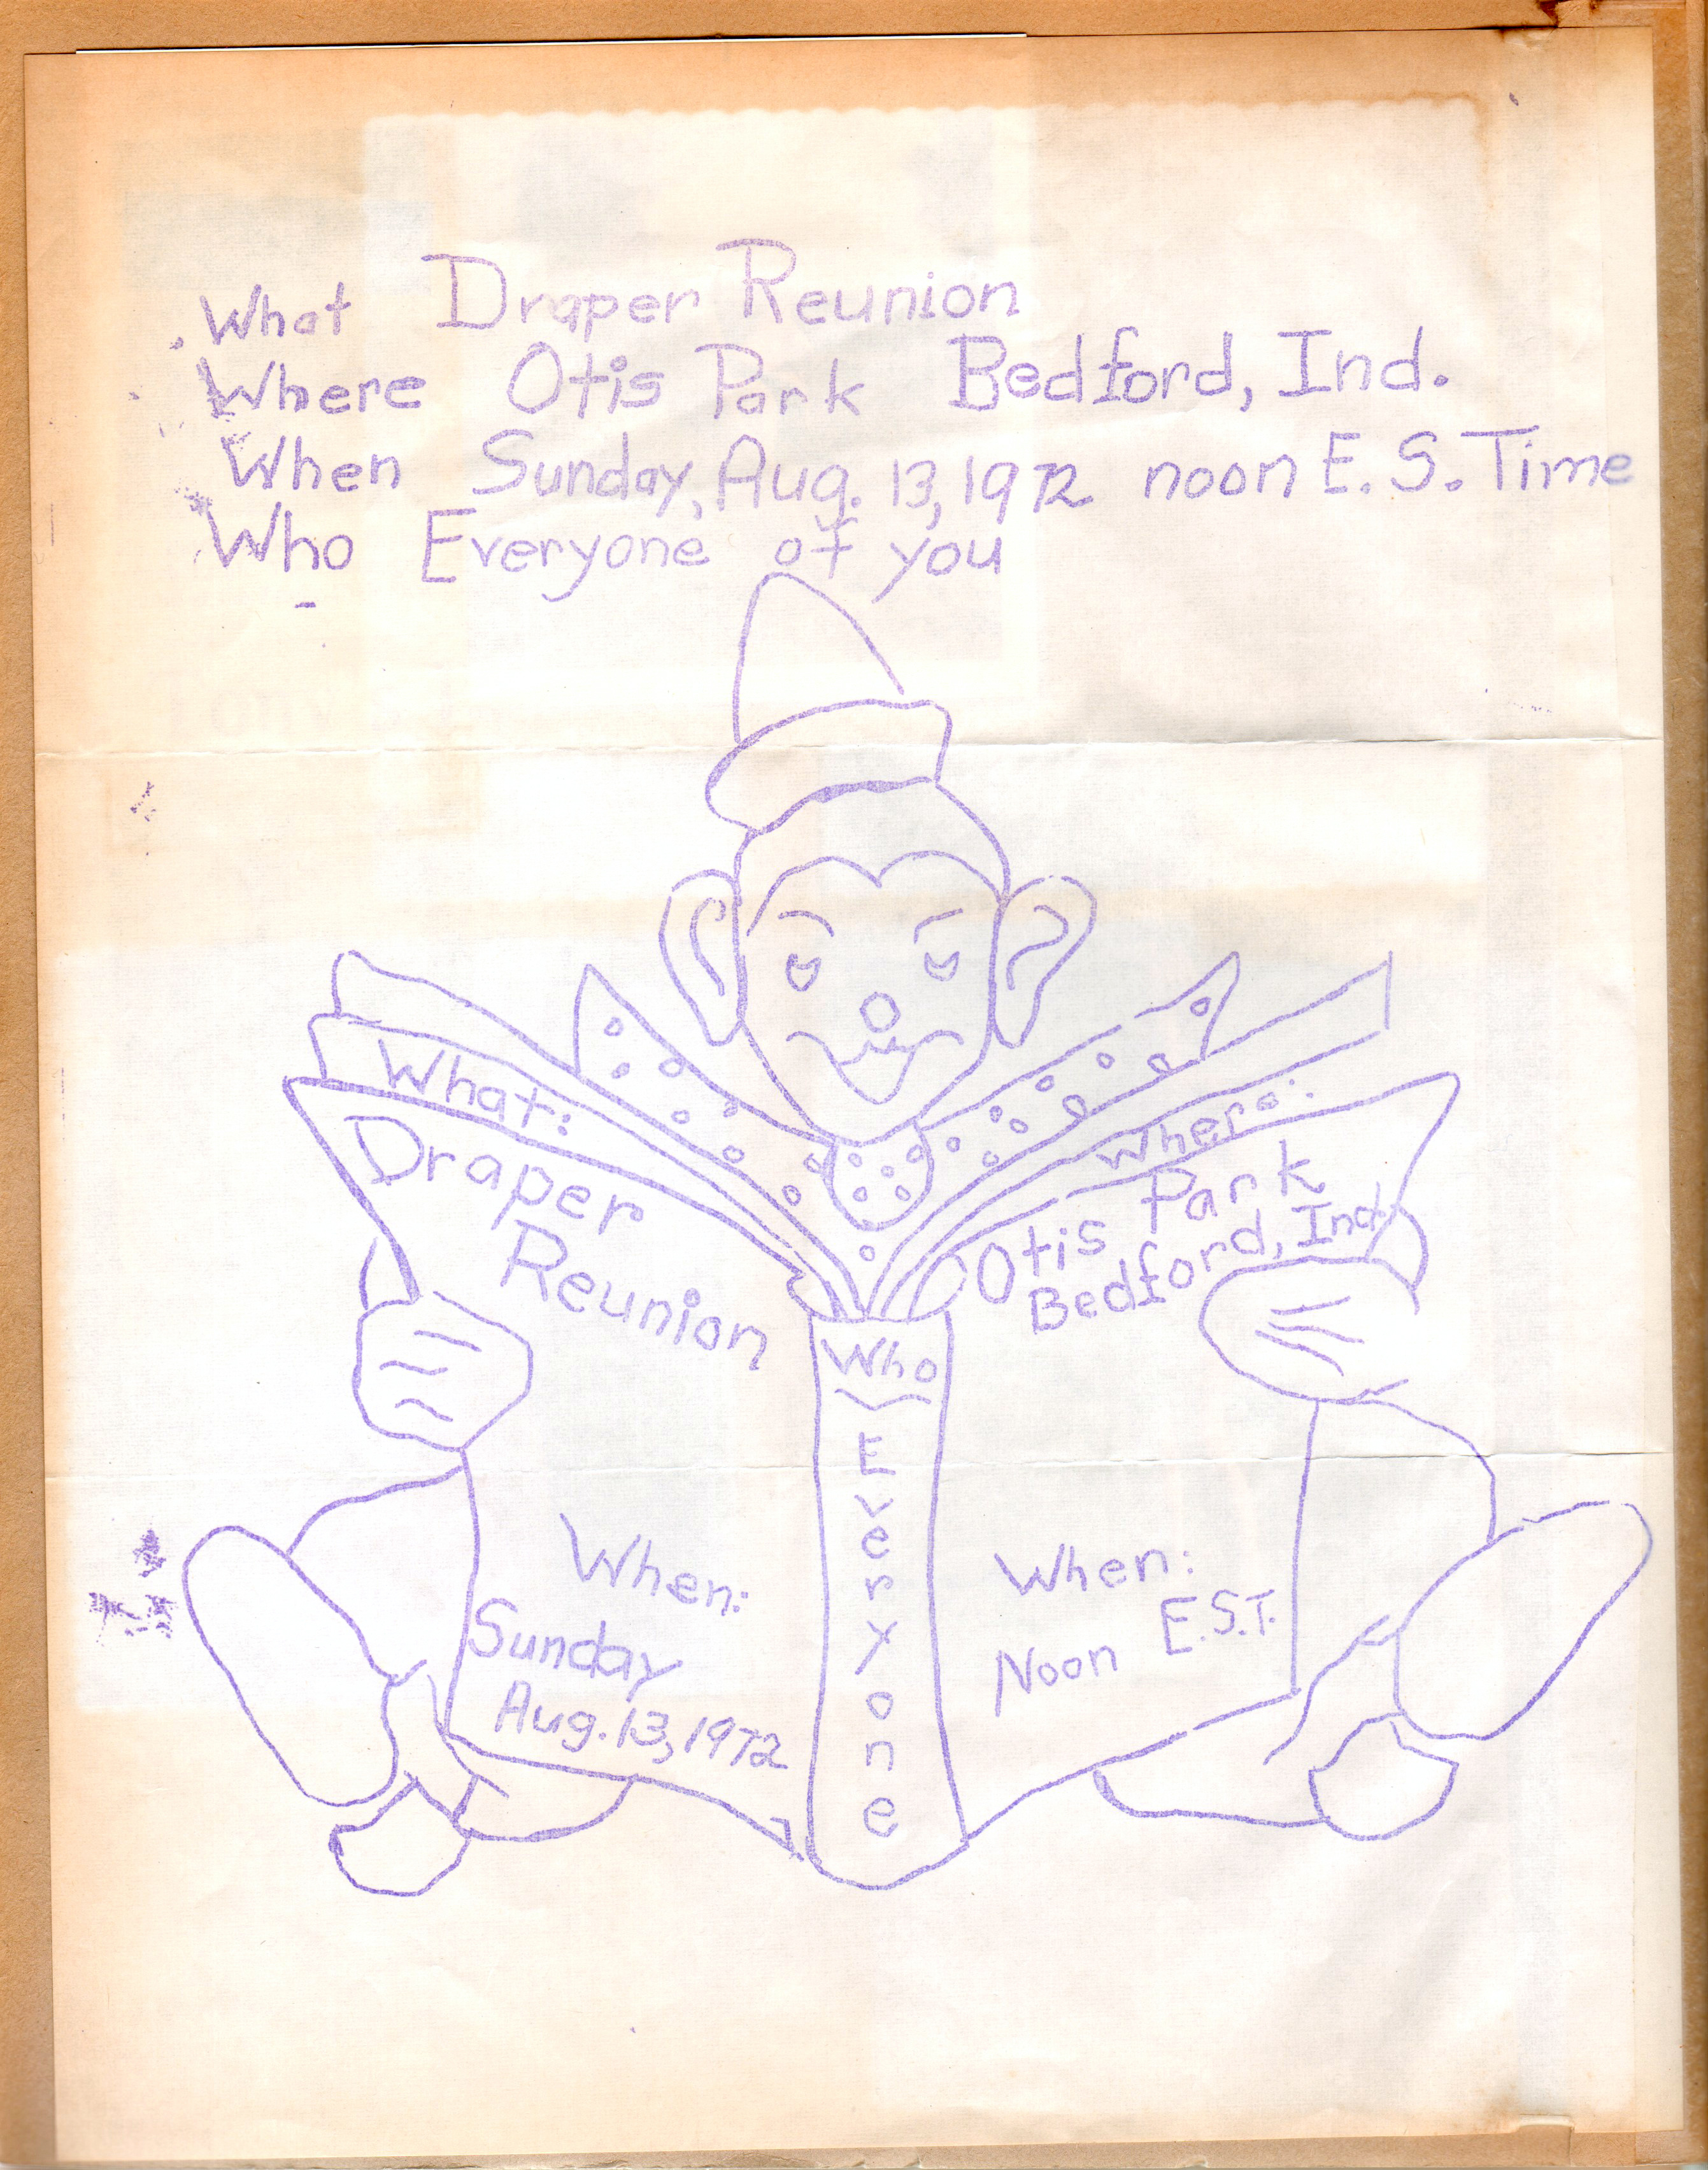 What Draper Reunion
Where Otis Park Bedford, Ind.
When Sunday, Aug. 13, 1972 noon E. S. Time
Who Everyone of you
What:
Draper
Reunion
Where:
Otis Park
Bedford, Ind.
Who
Everyone
When:
Sunday
Aug. 13, 1972
When:
Noon E.S.T.